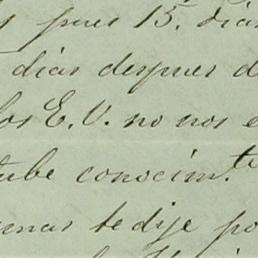 y pues 15. dias
dias despues d
los E.V. no nos e
tube conocim.to
enas te dije po